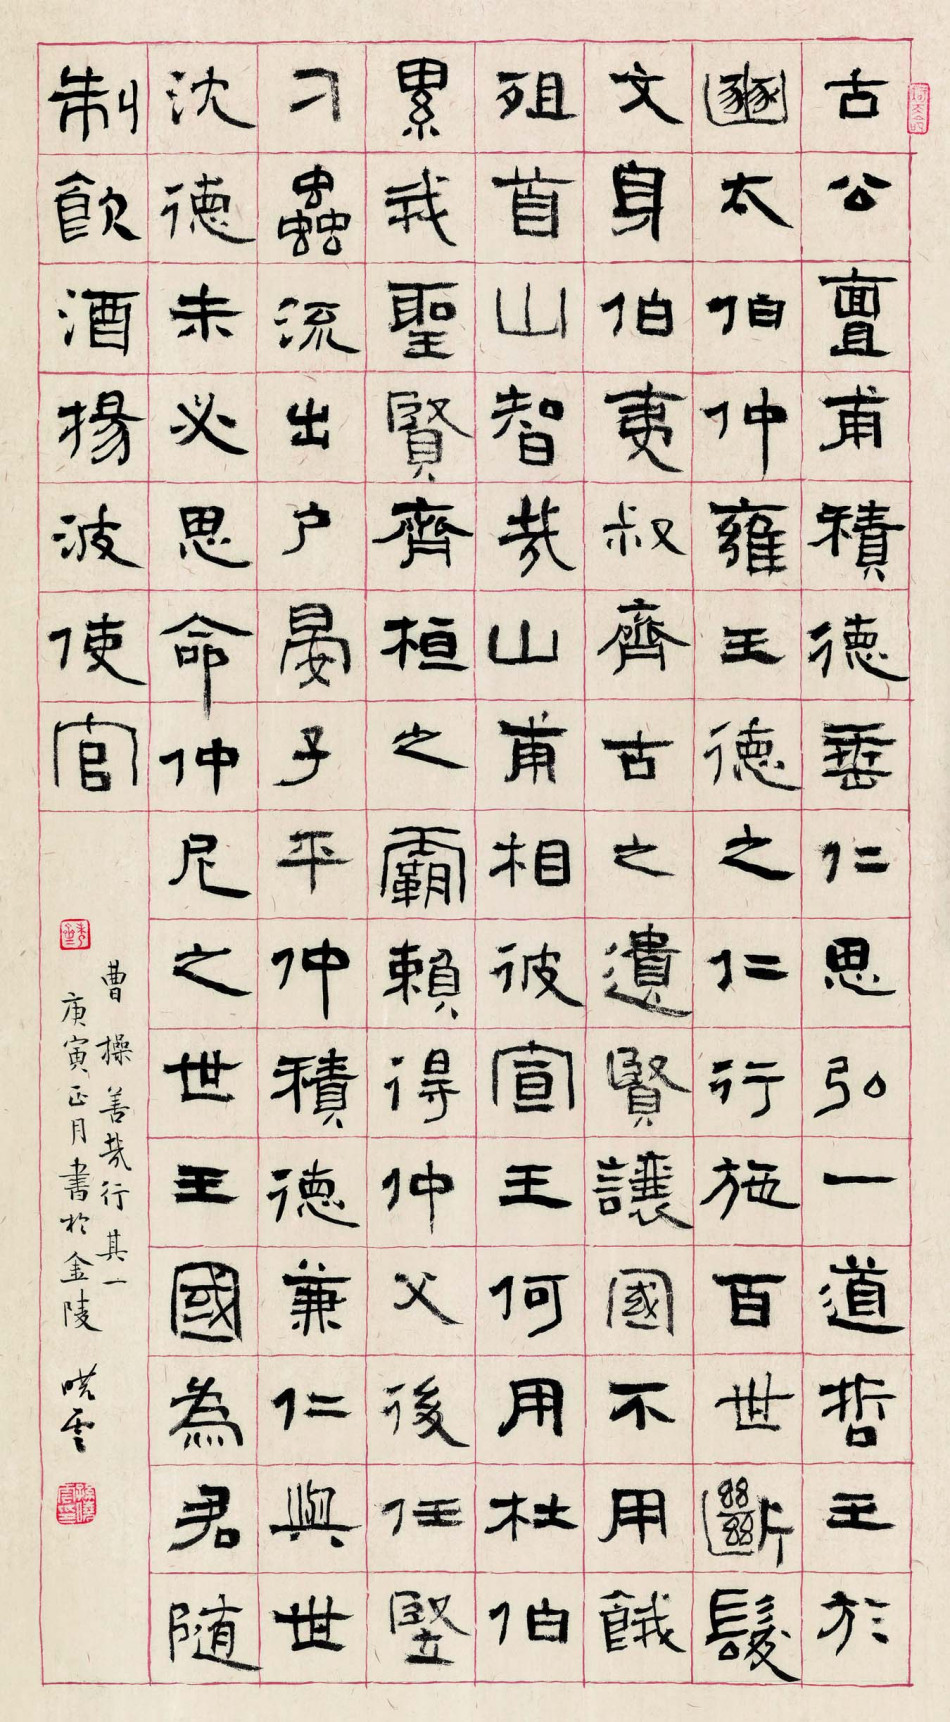 古公亶甫積德垂仁思弘一道哲王於
豳太伯仲雍王德之仁行施百世斷髮
文身伯夷叔齊古之遺賢讓國不用餓
殂首山智哉山甫相彼宣王何用杜伯
累我聖賢齊桓之霸賴得仲父後任豎
刁蟲流出戶晏子平仲積德兼仁與世
沈德未必思命仲尼之世王國為君隨
制飲酒揚波使官
曹操善哉行其一
庚寅正月書於金陵 晓雲